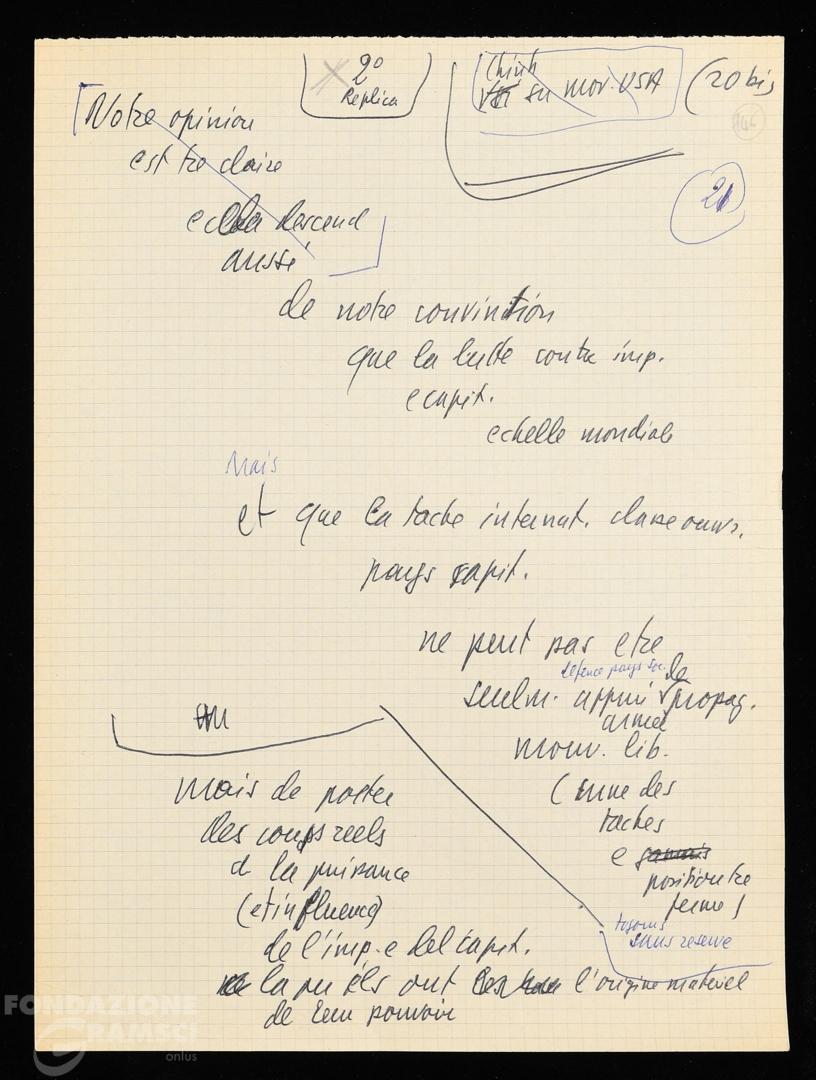 2º
Replica
Chinh
su mov. USA
(20 bis
146
21
Notre opinion
est tre claire
e cela descend
aussi
de notre convintion
que la lutte contre imp.
e capit.
echelle mondiale
Mais
et que la tache internat. classe ouvr.
pays capit.
ne peut pas etre
defence pays soc.
seulm. appui de propag.
armée
mouv. lib.
(une des
taches
e jamais
position tre
ferme)
toujours
sans reserve
mais de porter
des coups reels
a la puissance
(et influence)
de l'imp. e del capit.
la ou ils ont l'origine materiel
de leur pouvoir
FONDAZIONE
GRAMSCI
onlus